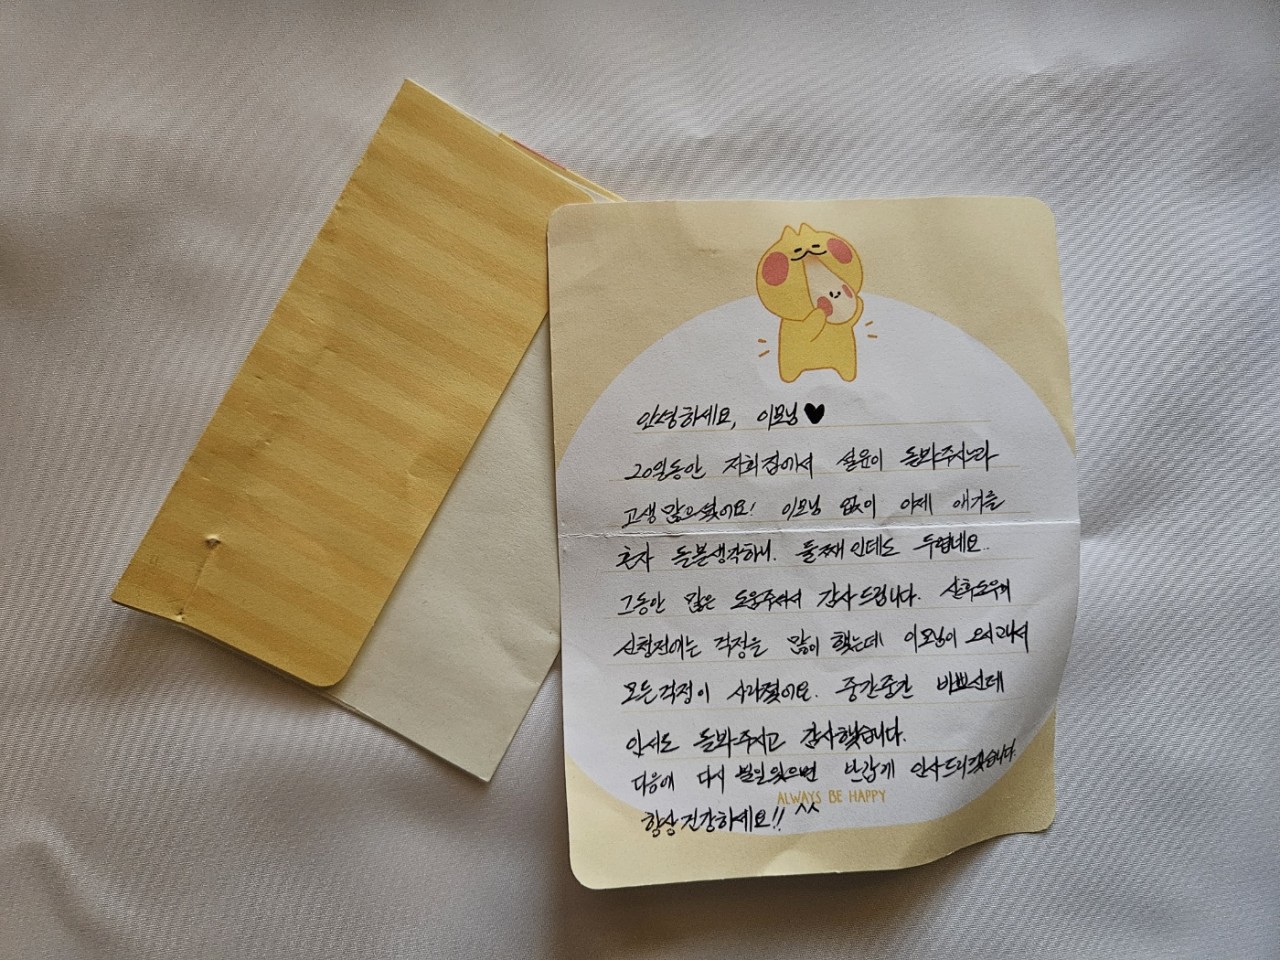 안녕하세요, 이모님♥
20일동안 저희집에서 설윤이 돌봐주시느라
고생 많으셨어요! 이모님 없이 이제 애기를
혼자 돌볼생각하니. 둘째인데도 두렵네요..
그동안 많은 도움주셔서 감사드립니다. 산후도우미
신청전에는 걱정을 많이 했는데 이모님이 오시고나서
모든걱정이 사라졌어요. 중간중간 바쁘신데
안서도 돌봐주시고 감사했습니다.
다음에 다시 뵐일있으면 반갑게 인사드리겠습니다.
ALWAYS BE HAPPY
항상 건강하세요!! ^^